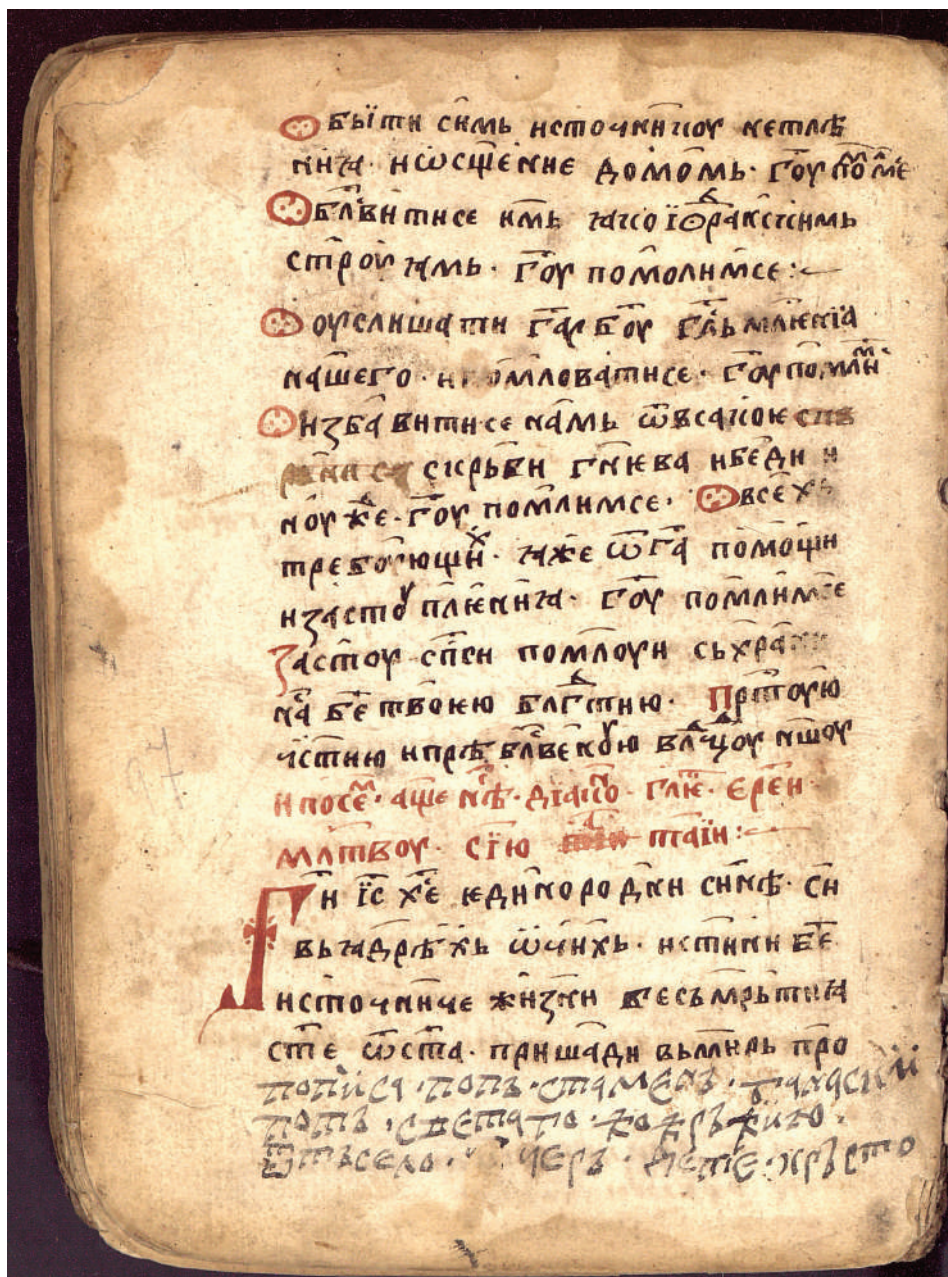 Ѡ бꙑїти си́мь источникоу нетлѣ
ниꙗ · иѡсщ҃ение домо́мь · гоу҃ по́мⷧ҇мⷭ҇е
Ѡ блв҃итисе и҆мь ꙗко їѡⷬ҇даньскимь
строуꙗмь · гоу҃ помо́лимсе :
Ѡ оуслишати га҃ бо҃у гл҃ь мл҃ениꙗ
на́шего · и помловатисе · гоу҃ помлиⷨ
Ѡ избавитисе на́мь ѿвсакоѥ
скрьби гнѥва ибе́ди и
ноуⷤде · гоу҃ помлимсе · Ѡ всѣхь
требоующиⷯ · ꙗже ѿ га҃ помощи
изастоупле́ниꙗ · гоу҃ помли́мсе
Застоу сп҃си помлоуи сьхрани
на бе҃ твоѥю блгⷣтию · Прⷭ҇тоую
чи́стию ипрѣблв҃еноую влⷣчцоу ншоу
и посеⷨ · аще нѣⷭ · дїакоⷩ · гл҃ѥ · ѥре́и
млтвоу · сїю таи :
Ги҃ їс҃ хе҃ ѥдинородни сн҃е · си
вьꙗдрѣхь ѡчихь · истини бе҃
источниче жизни бесьмрьтниꙗ
сте҃ ѿста҃ · пришади вьмирь про
пописа · попъ · стаменъ
попъ · светаго
ѿ село · хръсто